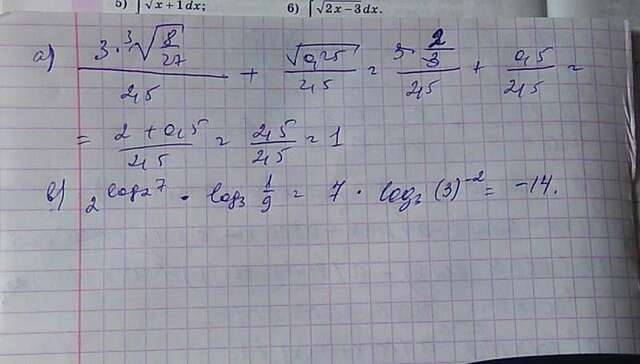 5) ∫√x + 1 dx; 6) ∫√2x − 3 dx.
а) 3·∛(8/27) / 2,5 + √0,25 / 2,5 = 3·2/3 / 2,5 + 0,5 / 2,5 =
= 2 + 0,5 / 2,5 = 2,5 / 2,5 = 1
в) 2^(log₂7) · log₃ 1/9 = 7 · log₃ (3)^(−2) = −14.